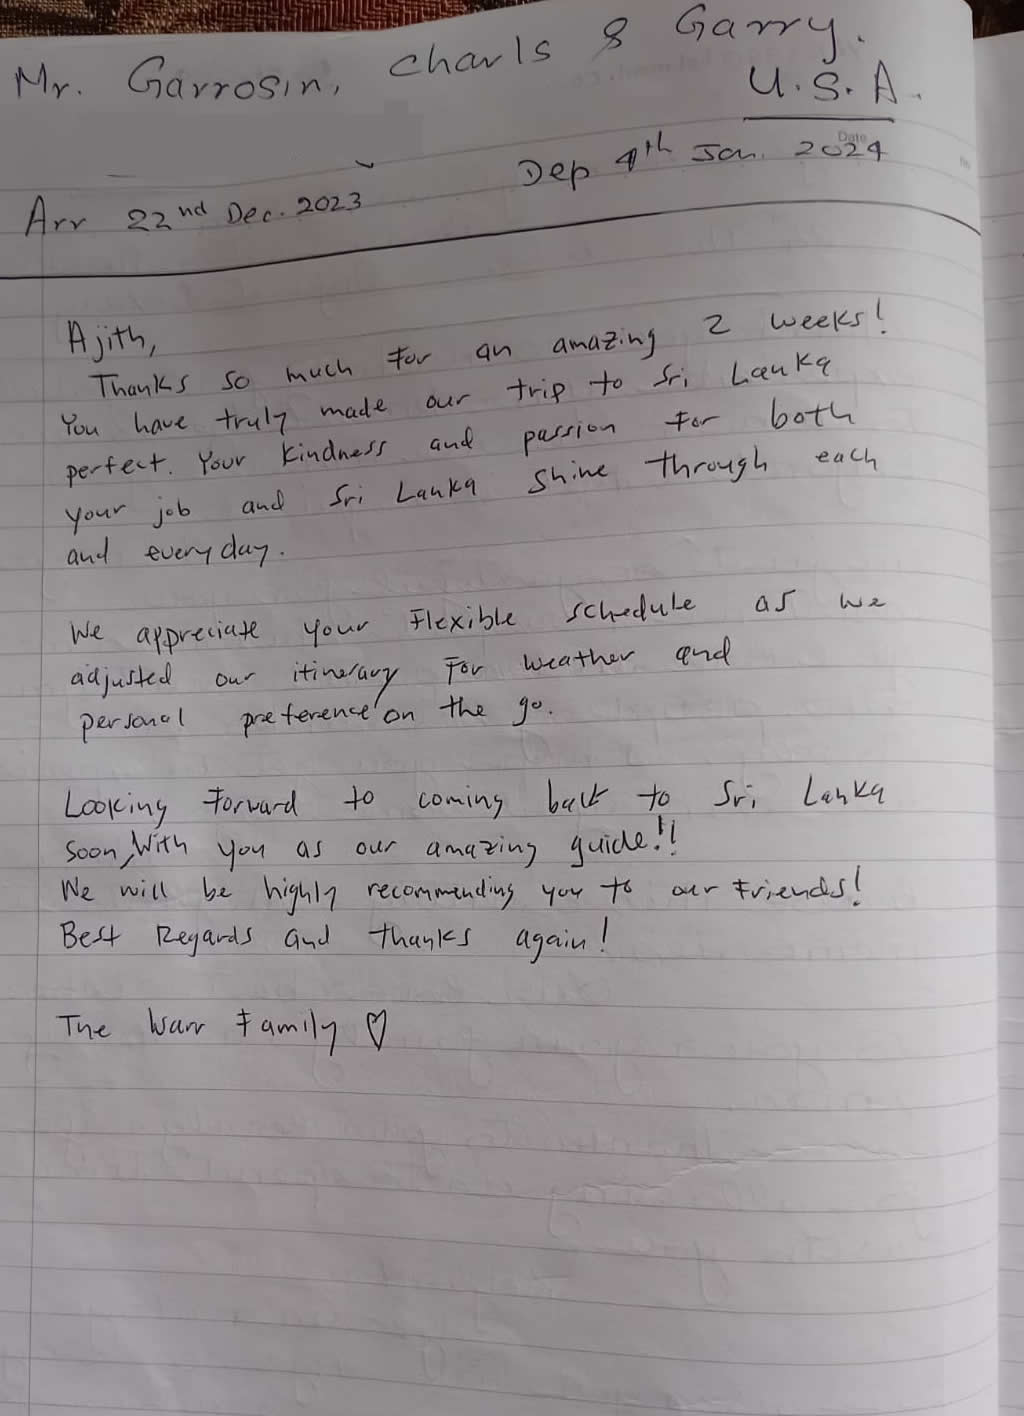 Mr. Garrosin, charls & Garry.
U.S.A.
Date
Arr 22nd Dec. 2023 Dep 4th Jan. 2024
Ajith,
Thanks so much for an amazing 2 weeks!
You have truly made our trip to Sri Lanka
perfect. Your kindness and passion for both
your job and Sri Lanka shine through each
and everyday.
We appreciate your flexible schedule as we
adjusted our itinerary for weather and
personal preference on the go.
Looking forward to coming back to Sri Lanka
soon, With you as our amazing guide!!
We will be highly recommending you to our friends!
Best Regards and thanks again!
The Warr Family ♡